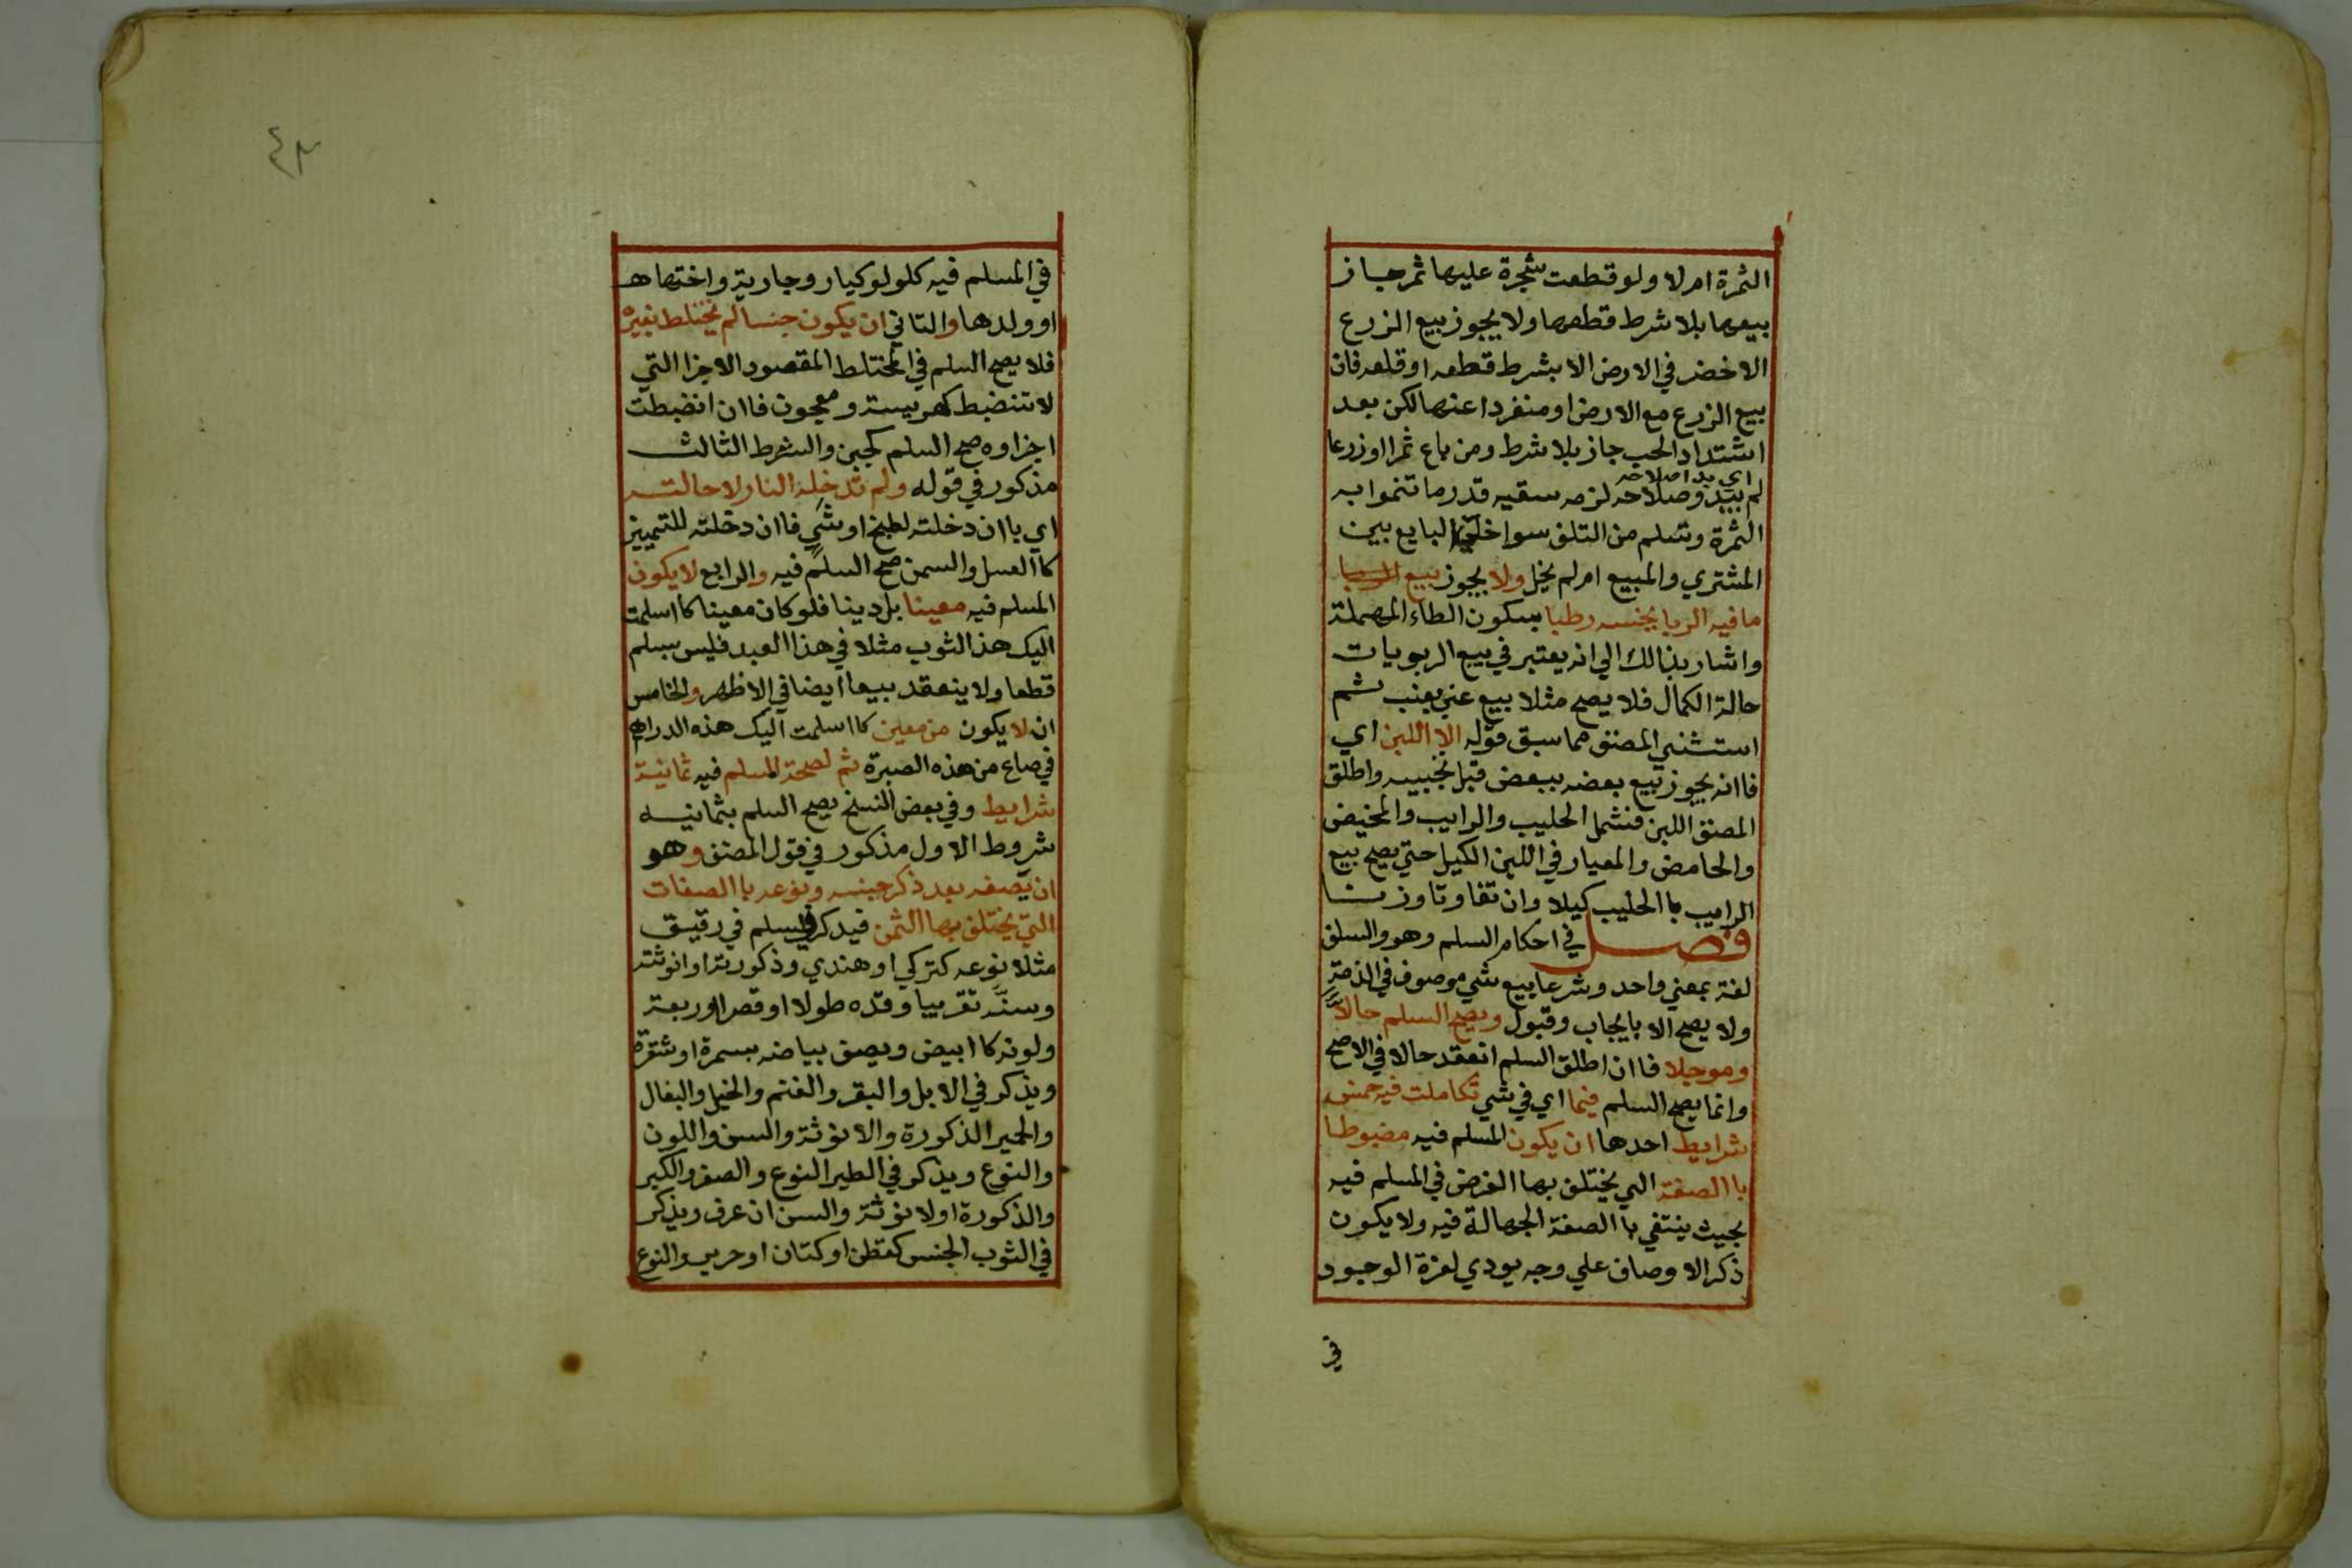 الثمرة ام لا ولو قطعت شجرة عليها ثمر جاز
بيعها بلا شرط قطعها ولا يجوز بيع الزرع
الاخضر في الارض الا بشرط قطعه او قلعه فان
بيع الزرع مع الارض او منفردا عنها لكن بعد
اشتداد الحب جاز بلا شرط ومن باع ثمرا او زرعا
اي بدا صلاحه
لم يبدو صلاحه لزمه سقيه قدر ما تنموا به
الثمرة وتسلم من التلف سوا خلي البايع بين
المشتري والمبيع ام لم يخل ولا يجوز بيع
ما فيه الربا بجنسه رطبا بسكون الطاء المهملة
واشار بذالك الي انه يعتبر في بيع الربويات
حالة الكمال فلا يصح مثلا بيع عنب بعنب ثم
استثني المصنف مما سبق قوله الا اللبن اي
فاانه يجوز بيع بعضه ببعض قبل تجبينه واطلق
المصنف اللبن فشمل الحليب والرايب والمخيض
والحامض والمعيار في اللبن الكيل حتي يصح بيع
الرايب باالحليب كيلا وان تفاوتا وزنا
فصل في احكام السلم وهو والسلف
لغة بمعني واحد وشرعا بيع شي موصوف في الذمة
ولا يصح الا بايجاب وقبول ويصح السلم حالاً
وموجلا فاان اطلق السلم انعقد حالا في الاصح
وانما يصح السلم فيما اي في شي تكاملت فيه خمس
شرايط احدها ان يكون المسلم فيه مضبوطا
باالصفة التي يختلف بها الغرض في المسلم فيه
بحيث ينتفي باالصفة الجهالة فيه ولا يكون
ذكر الاوصاف علي وجه يودي لعزة الوجود
في
٤٣
في المسلم فيه كلولو كبار وجارية واختها
او ولدها والثاني ان يكون جنسا لم يختلط بغيره
فلا يصح السلم في المختلط المقصود الاجزا التي
لا تنضبط كهريسة ومعجون فاان انضبطت
اجزاوه صح السلم كجبن والشرط الثالث
مذكور في قوله ولم تدخله النار لاحالته
اي باان دخلته لطبخ او شي فاان دخلته للتمييز
كاالعسل والسمن صح السلم فيه والرابع لا يكون
المسلم فيه معينا بل دينا فلو كان معينا كااسلمت
اليك هذ الثوب مثلا في هذا العبد فليس بسلم
قطعا ولا ينعقد بيعا ايضا في الاظهر والخامس
ان لا يكون من معين كااسلمت اليك هذه الدراهم
في صاع من هذه الصبرة ثم لصحة المسلم فيه ثمانية
شرايط وفي بعض النسخ يصح السلم بثمانيه
شروط الاول مذكور في قول المصنف وهو
ان يصفه بعد ذكر جنسه ونوعه باالصفات
التي يختلف بها الثمن فيدكر في السلم في رقيق
مثلا نوعه كتركي او هندي وذكورته او انوثته
وسنّه تقريبا وقده طولا او قصرا او ربعة
ولونه كاابيض ويصف بياضه بسمرة او شقرة
ويذكر في الابل والبقر والغنم والخيل والبغال
والحمير الذكورة والانوثة والسن واللون
والنوع ويذكر في الطير النوع والصغر والكبر
والذكورة اولانوثة والسن ان عرف ويذكر
في الثوب الجنس كقطن او كتان او حرير والنوع